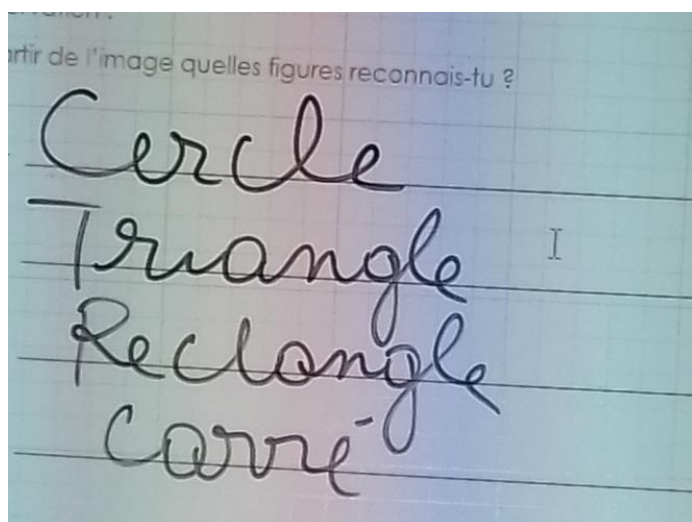 artir de l'image quelles figures reconnais-tu ?
Cercle
Triangle
Rectangle
Carré